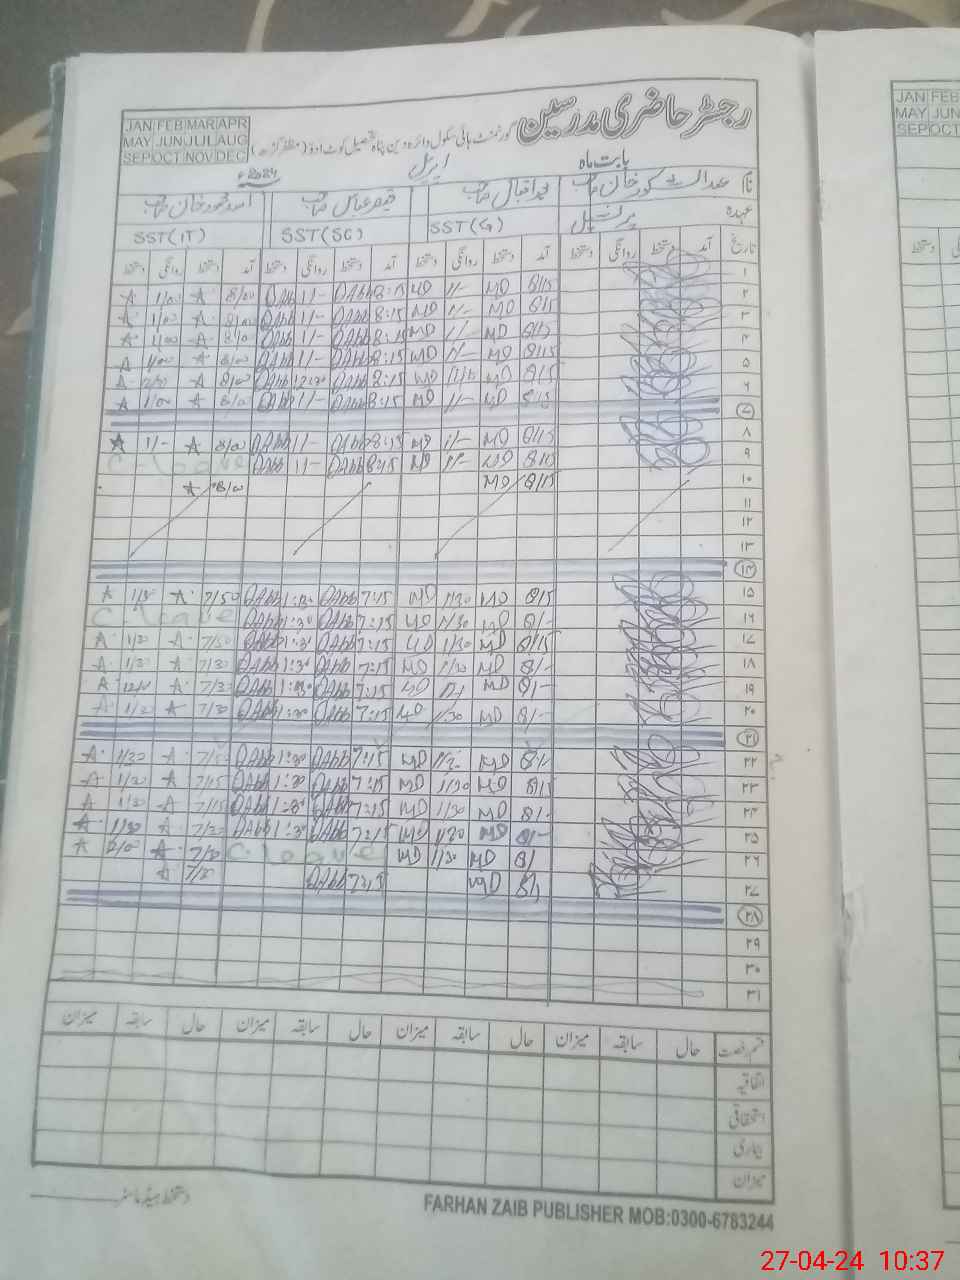 رجسٹر حاضری مدرسین
JAN FEB MAR APR
MAY JUN JUL AUG
SEP OCT NOV DEC
گورنمنٹ ہائی سکول دائرہ دین پناہ تحصیل کوٹ ادو (مظفر گڑھ)
بابت ماہ اپریل 2024ء
نام خان صاحب محمد اقبال صاحب قیصر عباس صاحب اسد محمود خان صاحب
عہدہ پرنسپل SST(G) SST(SC) SST(IT)
تاریخ آمد دستخط روانگی دستخط آمد دستخط روانگی دستخط آمد دستخط روانگی دستخط آمد دستخط روانگی دستخط
۱
۲ 8/15 MD 1/- MD 8:15 QAbb 1/- QAbb 8/00 1/00
۳ 8/15 MD 1/- MD 8:15 QAbb 1/- QAbb 8/00 1/00
۴ 8/15 MD 1/- MD 8:15 QAbb 1/- QAbb 8/00 1/00
۵ 8/15 MD 1/- MD 8:15 QAbb 1/- QAbb 8/00 1/00
۶ 8/15 MD MD 8:15 QAbb 12:30 QAbb 8/00
8/15 MD 1/- MD 8:15 QAbb 1/- QAbb 8/00 1/00
۷
۸ 8/15 MD 1/- MD 8:15 QAbb 1/- QAbb 8/00 1/-
۹ 8/15 MD 1/- MD 8:15 QAbb 1/- QAbb C. leave
۱۰ 8/15 MD 8/00
۱۱
۱۲
۱۳
۱۴
۱۵ 8/15 MD 1/30 MD 7:15 QAbb 1:30 QAbb 7/50 1/30
۱۶ 8/15 MD 1/30 MD 7:15 QAbb 1:30 QAbb C. leave
۱۷ 8/15 MD 1/30 MD 7:15 QAbb 1:30 QAbb 7/50 1/30
۱۸ 8/- MD 1/30 MD 7:15 QAbb 1:30 QAbb 7/30 1/30
۱۹ 8/- MD MD 7:15 QAbb 1:30 QAbb 7/30
۲۰ 8/- MD 1/30 MD 7:15 QAbb 1:30 QAbb 7/30 1/30
۲۱
۲۲ 8/- MD 1/30 MD 7:15 QAbb 1:30 QAbb 7/50 1/30
۲۳ 8/15 MD 1/30 MD 7:15 QAbb 1:30 QAbb 7/15 1/30
۲۴ 8/- MD 1/30 MD 7:15 QAbb 1:30 QAbb 7/15 1/30
۲۵ 8/- MD 1/30 MD 7:15 QAbb 1:30 QAbb 7/30 1/30
۲۶ 8/- MD 1/30 MD C. leave 7/30
۲۷ MD QAbb 7:15 7/30
۲۸
۲۹
۳۰
۳۱
قسم رخصت حال سابقہ میزان حال سابقہ میزان حال سابقہ میزان حال سابقہ میزان
اتفاقیہ
استحقاقی
بیماری
میزان
دستخط ہیڈ ماسٹر
FARHAN ZAIB PUBLISHER MOB:0300-6783244
JAN FEB
MAY JUN
SEP OCT
27-04-24 10:37